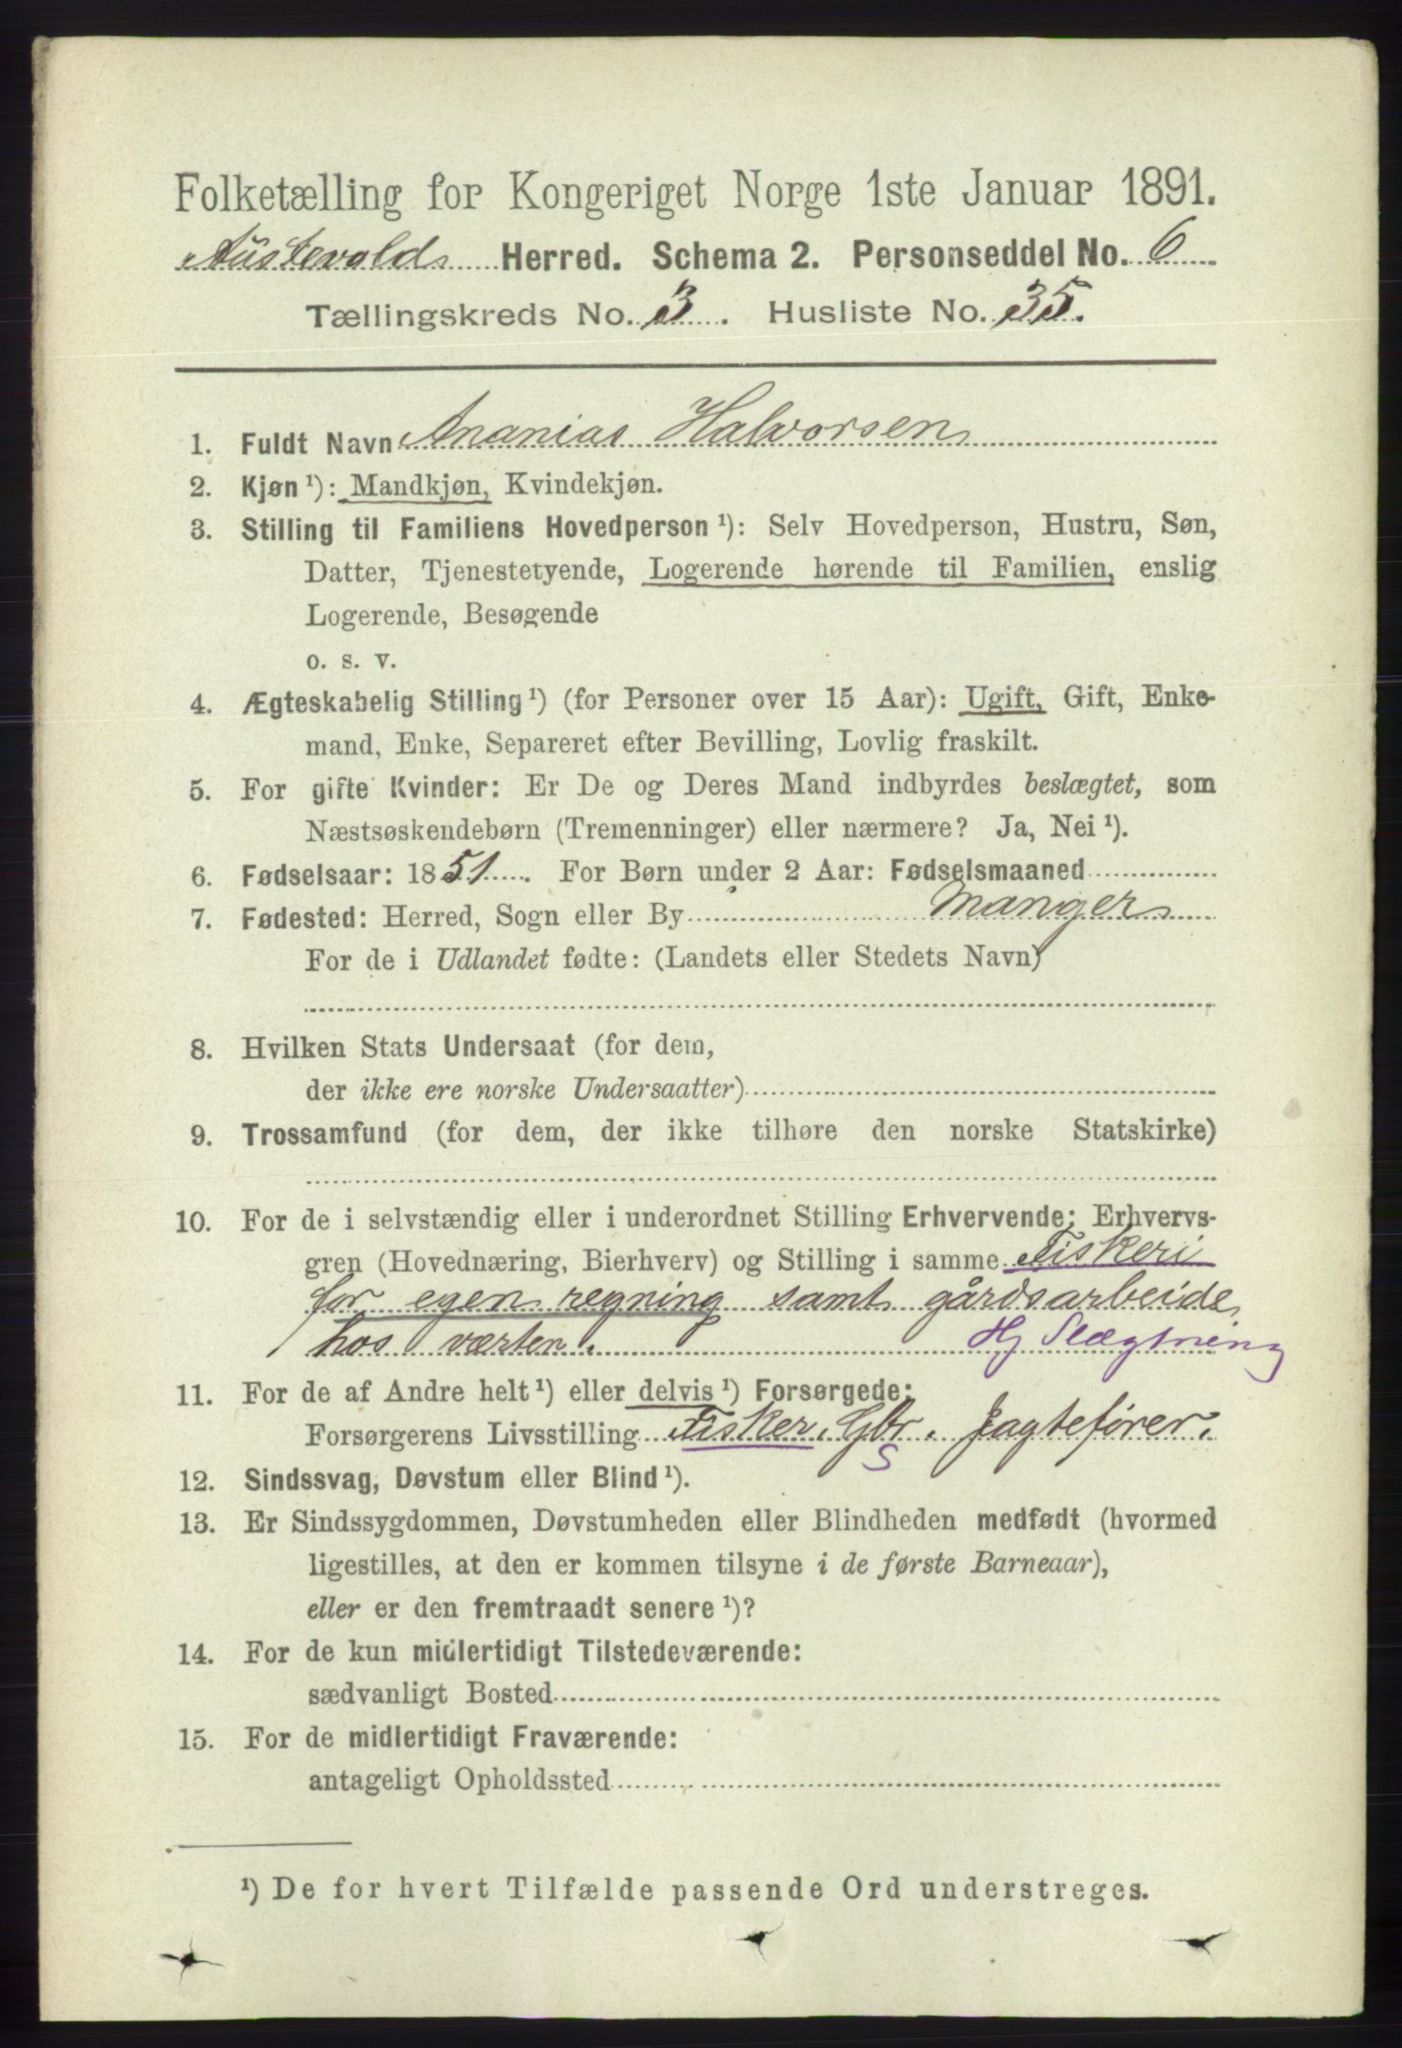 Folketælling for Kongeriget Norge 1ste Januar 1891.
Austevolds Herred. Schema 2. Personseddel No. 6
Tællingskreds No. 3. Husliste No. 35.
1. Fuldt Navn Ananias Halvorsen
2. Kjøn ¹): Mandkjøn, Kvindekjøn.
3. Stilling til Familiens Hovedperson ¹): Selv Hovedperson, Hustru, Søn,
Datter, Tjenestetyende, Logerende hørende til Familien, enslig
Logerende, Besøgende
o. s. v.
4. Ægteskabelig Stilling ¹) (for Personer over 15 Aar): Ugift, Gift, Enke-
mand, Enke, Separeret efter Bevilling, Lovlig fraskilt.
5. For gifte Kvinder: Er De og Deres Mand indbyrdes beslægtet, som
Næstsøskendebørn (Tremenninger) eller nærmere? Ja, Nei ¹).
6. Fødselsaar: 1851. For Børn under 2 Aar: Fødselsmaaned
7. Fødested: Herred, Sogn eller By Manger
For de i Udlandet fødte: (Landets eller Stedets Navn)
8. Hvilken Stats Undersaat (for dem,
der ikke ere norske Undersaatter)
9. Trossamfund (for dem, der ikke tilhøre den norske Statskirke)
10. For de i selvstændig eller i underordnet Stilling Erhvervende: Erhvervs-
gren (Hovednæring, Bierhverv) og Stilling i samme Fiskeri
for egen regning samt gårdsarbeide
hos værten. Hj Slægtning
11. For de af Andre helt ¹) eller delvis ¹) Forsørgede:
Forsørgerens Livsstilling Fisker, Gbr. Jagtefører.
S
12. Sindssvag, Døvstum eller Blind ¹).
13. Er Sindssygdommen, Døvstumheden eller Blindheden medfødt (hvormed
ligestilles, at den er kommen tilsyne i de første Barneaar),
eller er den fremtraadt senere ¹)?
14. For de kun midlertidigt Tilstedeværende:
sædvanligt Bosted
15. For de midlertidigt Fraværende:
antageligt Opholdssted
¹) De for hvert Tilfælde passende Ord understreges.